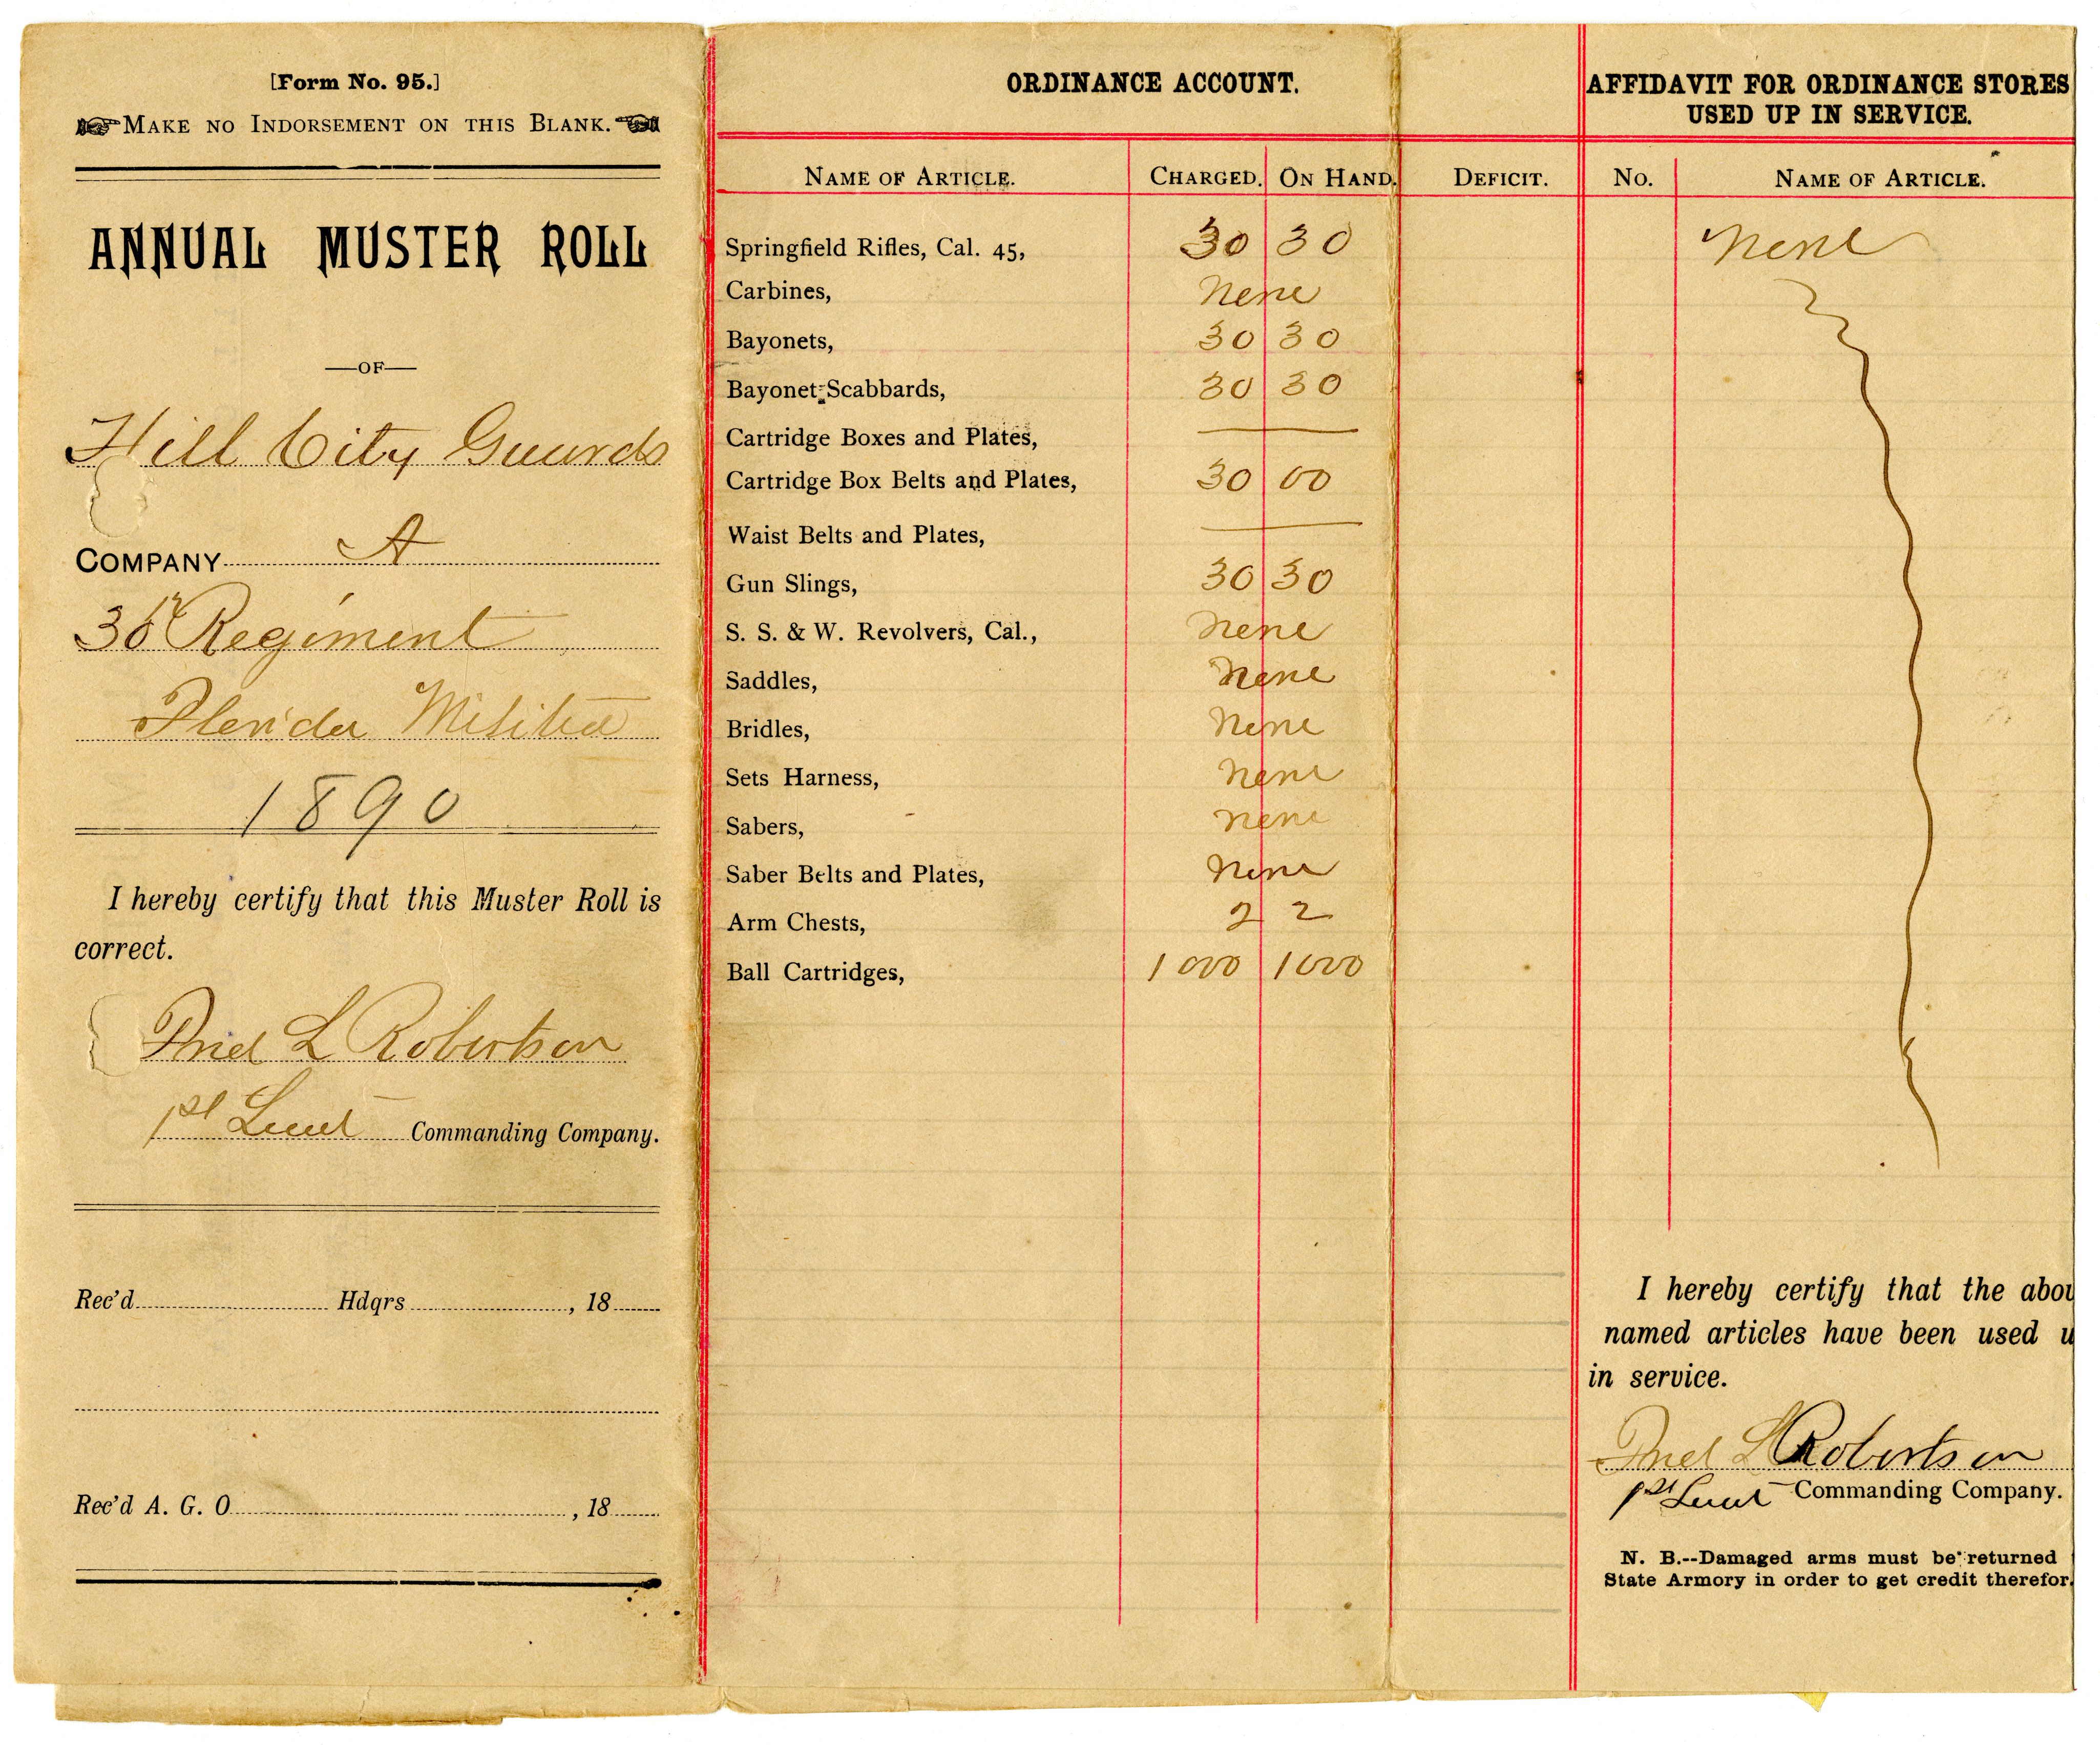 [Form No. 95.]
MAKE NO INDORSEMENT ON THIS BLANK.
ANNUAL MUSTER ROLL
—OF—
Hill City Guards
COMPANY A
3d Regiment
Florida Militia
1890
I hereby certify that this Muster Roll is
correct.
Fred L Robertson
1st Lieut Commanding Company.
Rec'd Hdqrs , 18
Rec'd A. G. O , 18
ORDINANCE ACCOUNT.
NAME OF ARTICLE. CHARGED. ON HAND. DEFICIT.
Springfield Rifles, Cal. 45, 30 30
Carbines, None
Bayonets, 30 30
Bayonet-Scabbards, 30 30
Cartridge Boxes and Plates, —
Cartridge Box Belts and Plates, 30 00
Waist Belts and Plates, —
Gun Slings, 30 30
S. S. & W. Revolvers, Cal., None
Saddles, None
Bridles, None
Sets Harness, None
Sabers, None
Saber Belts and Plates, None
Arm Chests, 2 2
Ball Cartridges, 1000 1000
AFFIDAVIT FOR ORDINANCE STORES
USED UP IN SERVICE.
NO. NAME OF ARTICLE.
None
I hereby certify that the abov
named articles have been used u
in service.
Fred L Robertson
1st Lieut Commanding Company.
N. B.--Damaged arms must be returned
State Armory in order to get credit therefor.